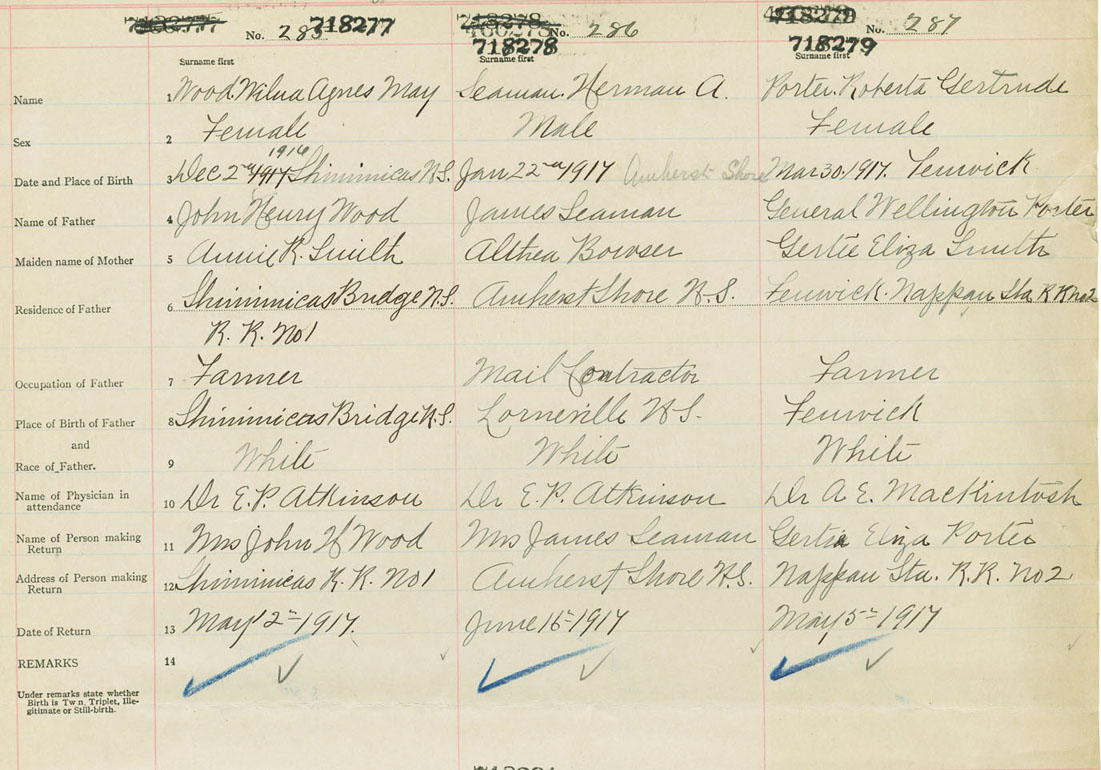 No. 285 718277 718278 No. 286 718279 No. 287
718278 718279
Surname first Surname first Surname first
Name 1 Wood. Wilua Agnes May Seaman. Herman A. Porter. Roberta Gertrude
Sex 2 Female Male Female
1916
Date and Place of Birth 3 Dec 2nd 1917 Shinimicas N.S. Jan 22nd 1917 Amherst Shore Mar 30. 1917. Fenwick
Name of Father 4 John Henry Wood James Seaman General Wellington Porter
Maiden name of Mother 5 Annie R. Smith Althea Bowser Gertie Eliza Smith
Residence of Father 6 Shinimicas Bridge N.S. Amherst Shore N.S. Fenwick. Nappan Sta R.R no 2
R. R. No 1
Occupation of Father 7 Farmer Mail Contractor Farmer
Place of Birth of Father 8 Shinimicas Bridge N.S. Lorneville N.S. Fenwick
and
Race of Father. 9 White White White
Name of Physician in attendance 10 Dr E. P. Atkinson Dr E. P. Atkinson Dr A E. MacKintosh
Name of Person making Return 11 Mrs John H Wood Mrs James Seaman Gertie Eliza Porter
Address of Person making Return 12 Shinimicas R. R. No 1 Amherst Shore N.S. Nappan Sta. R.R. No 2
Date of Return 13 May 2nd 1917. June 15 1917 May 5th 1917
REMARKS 14
Under remarks state whether
Birth is Twn, Triplet, Ille-
gitimate or Still-birth.